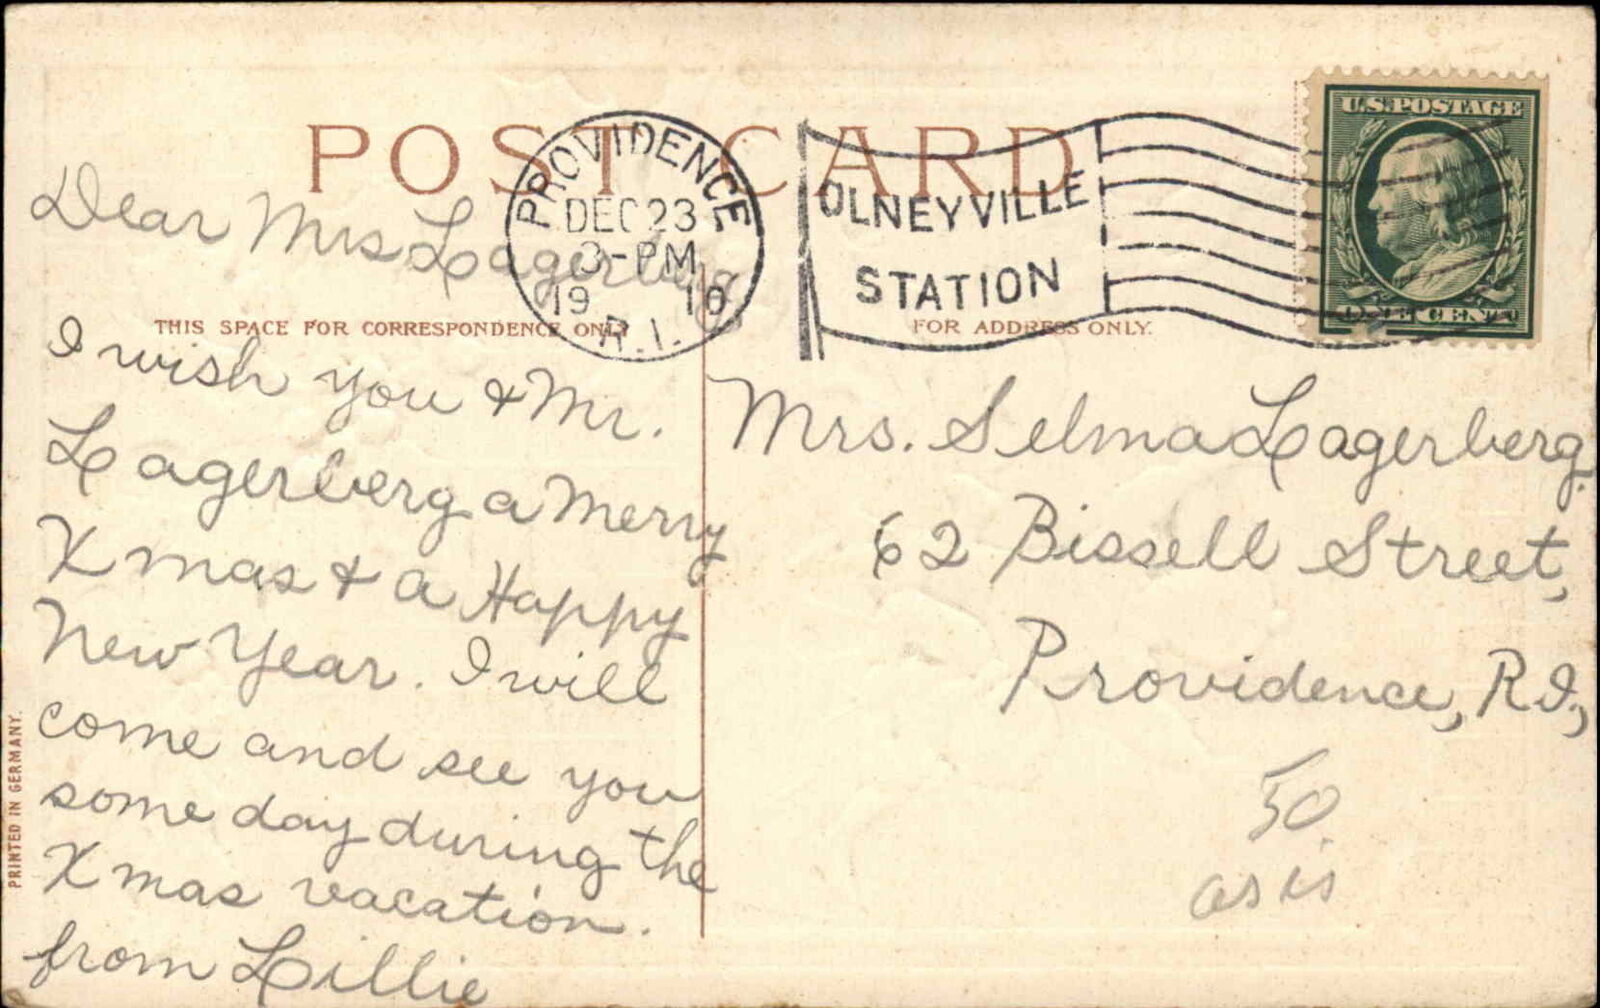 POST CARD
PROVIDENCE
DEC 23
3-PM
19 10
R.I.
OLNEYVILLE
STATION
U.S. POSTAGE
ONE CENT
THIS SPACE FOR CORRESPONDENCE ONLY
FOR ADDRESS ONLY.
Dear Mrs Lagerberg
I wish you & Mr.
Lagerberg a Merry
Xmas & a Happy
New Year. I will
come and see you
some day during the
Xmas vacation.
from Lillie
Mrs. Selma Lagerberg.
62 Bissell Street,
Providence, R.I.,
50
as is
PRINTED IN GERMANY.